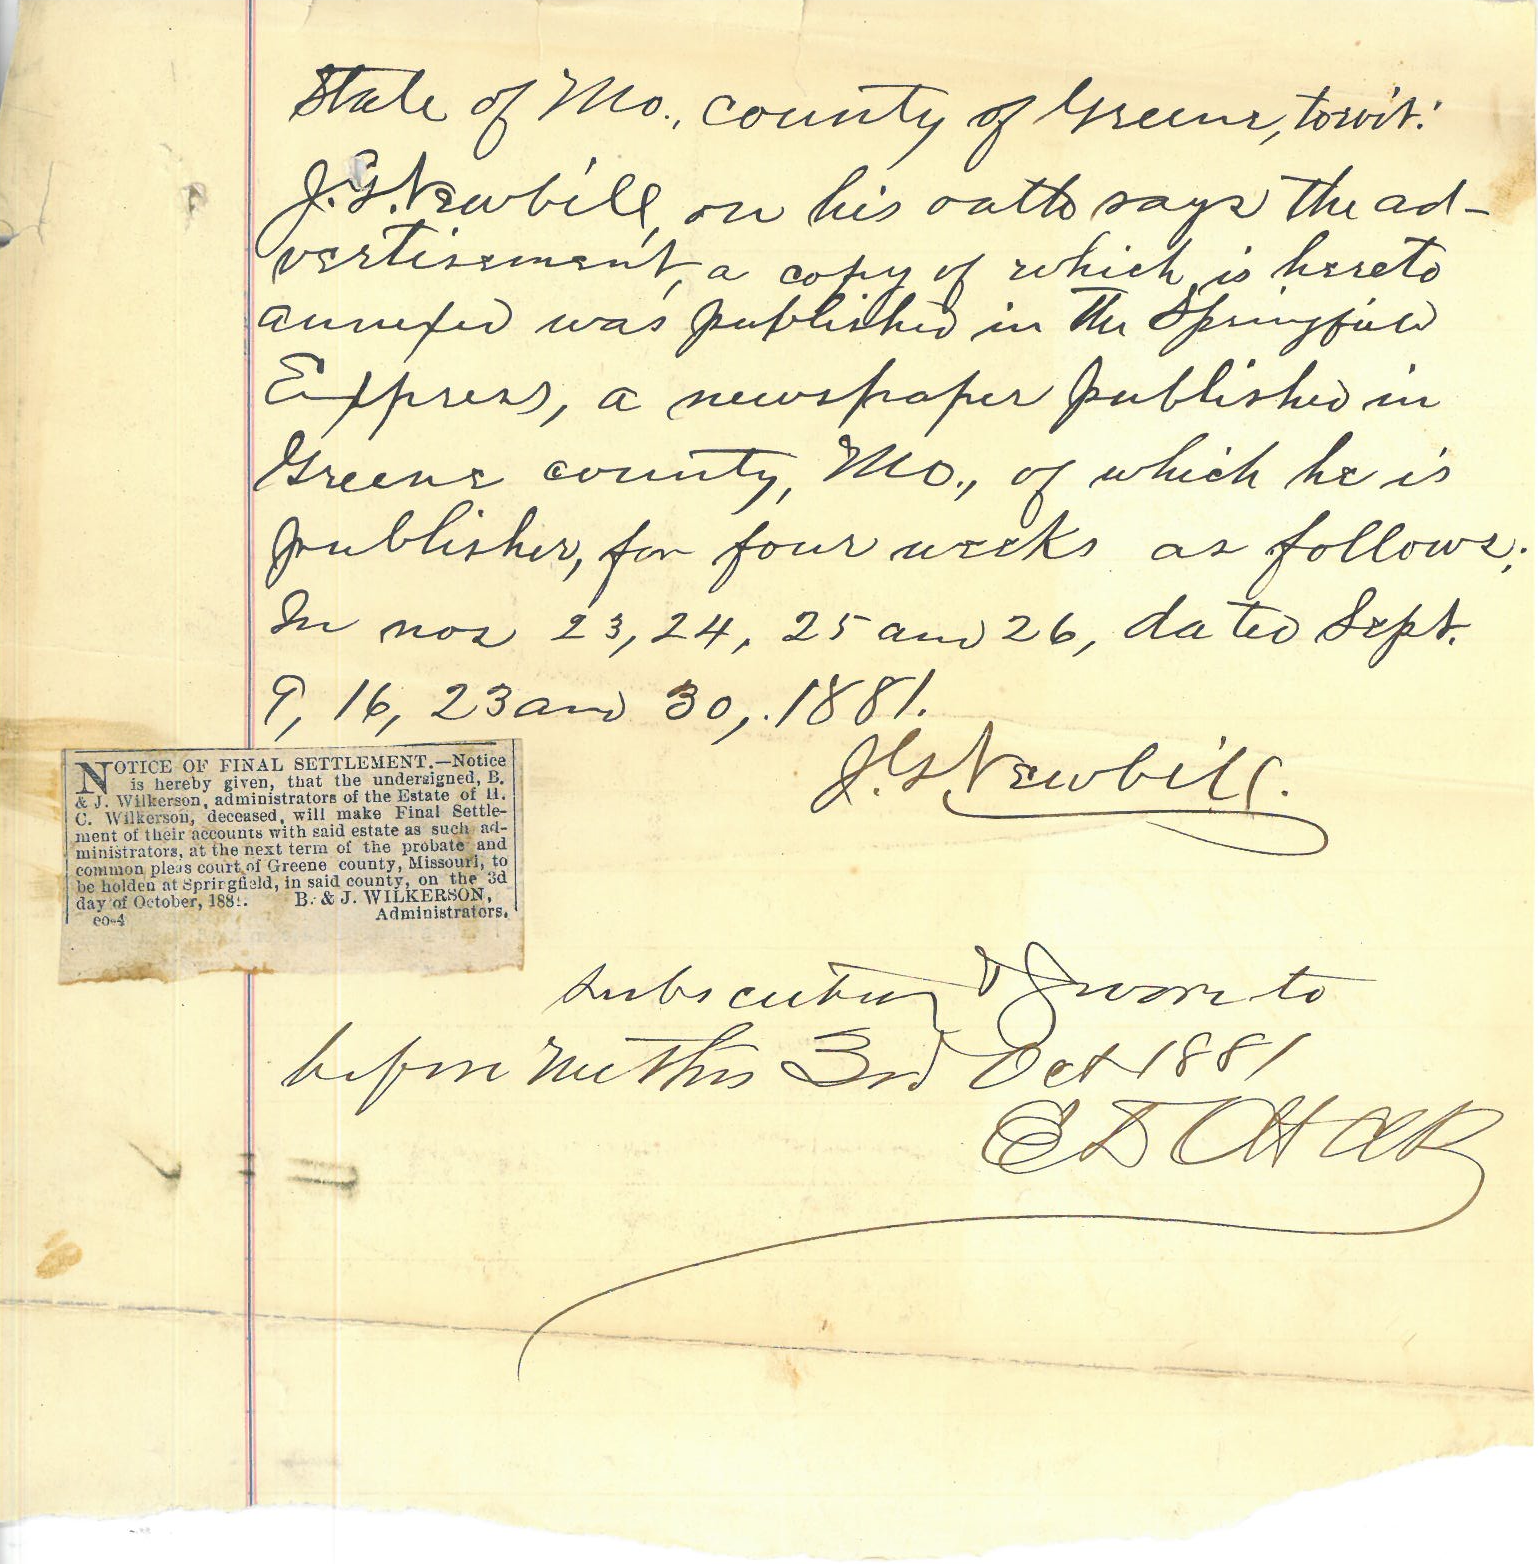 State of Mo., county of Greene, towit:
J. G. Newbill, on his oath says the ad-
vertisement, a copy of which is hereto
annexed was published in the Springfield
Express, a newspaper published in
Greene county, Mo., of which he is
publisher, for four weeks as follows:
In nos 23, 24, 25 and 26, dated Sept.
9, 16, 23 and 30, 1881.
J. G. Newbill.
NOTICE OF FINAL SETTLEMENT.—Notice
is hereby given, that the undersigned, B.
& J. Wilkerson, administrators of the Estate of H.
C. Wilkerson, deceased, will make Final Settle-
ment of their accounts with said estate as such ad-
ministrators, at the next term of the probate and
common pleas court of Greene county, Missouri, to
be holden at Springfield, in said county, on the 3d
day of October, 1881. B. & J. WILKERSON,
eo-4 Administrators.
Subscribed & Sworn to
before me this 3rd Oct 1881